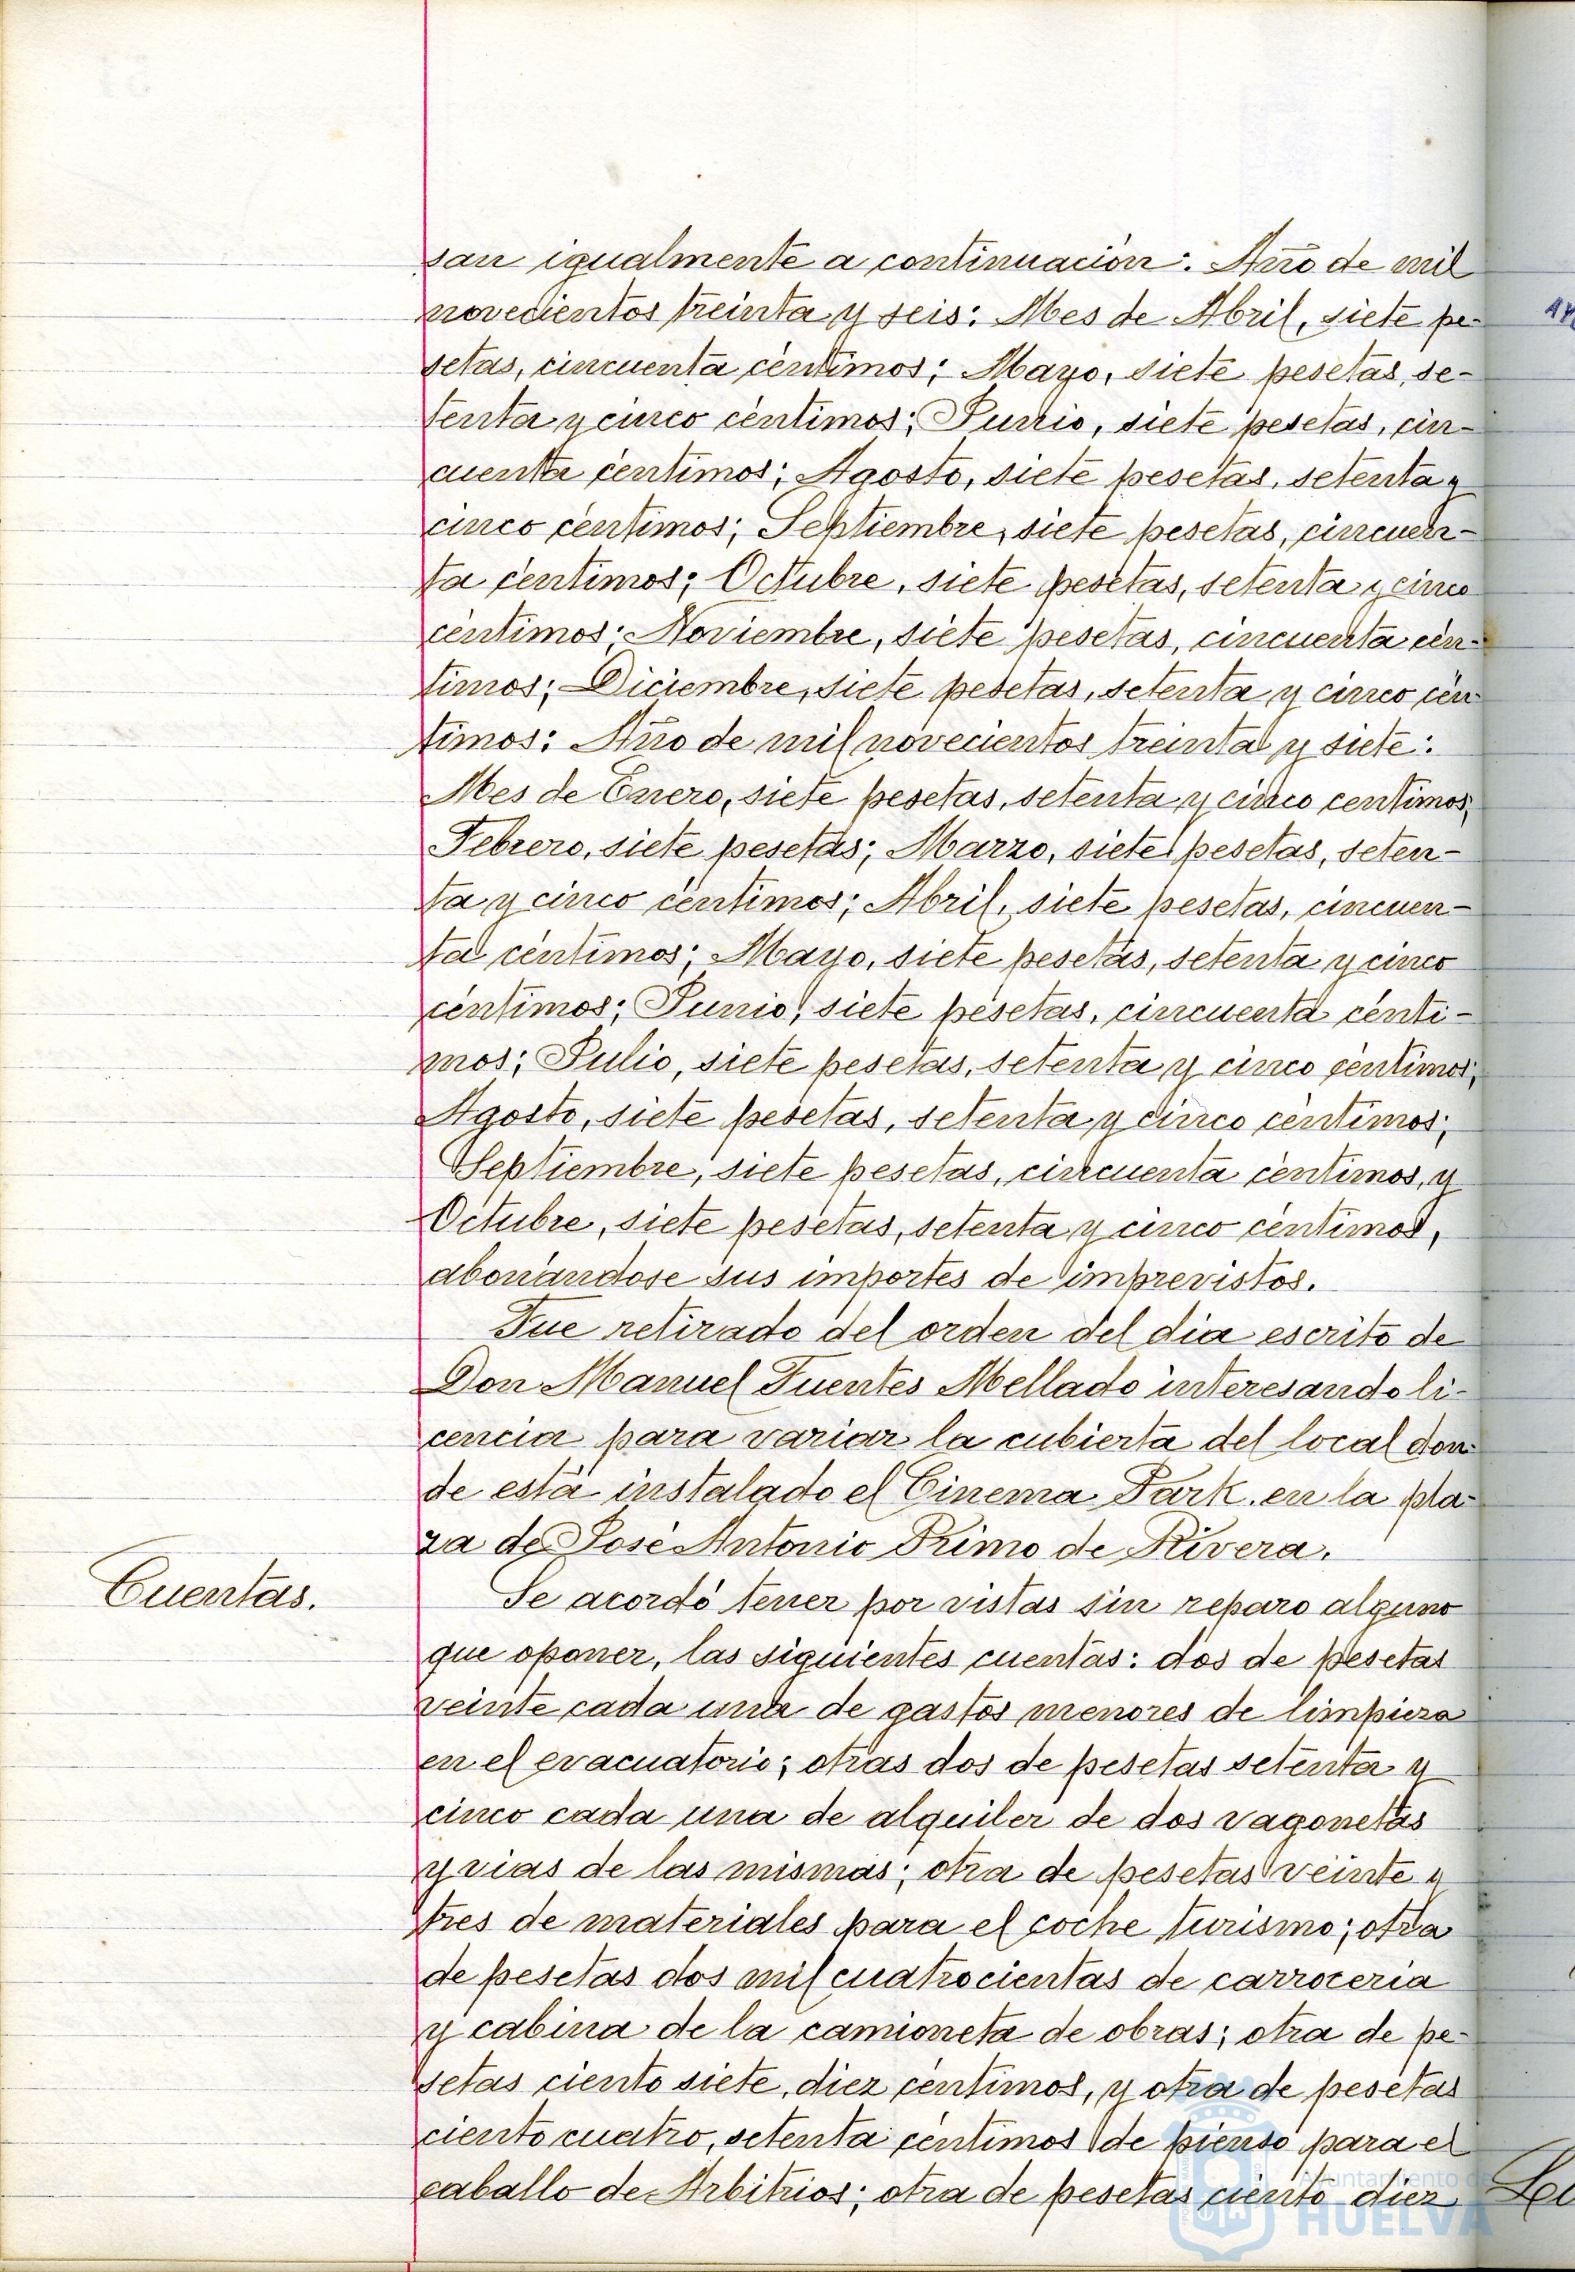 san igualmente a continuación: Año de mil
novecientos treinta y seis: Mes de Abril, siete pe-
setas, cincuenta céntimos; Mayo, siete pesetas, se-
tenta y cinco céntimos; Junio, siete pesetas, cin-
cuenta céntimos; Agosto, siete pesetas, setenta y
cinco céntimos; Septiembre, siete pesetas, cincuen-
ta céntimos; Octubre, siete pesetas, setenta y cinco
céntimos; Noviembre, siete pesetas, cincuenta cén-
timos; Diciembre, siete pesetas, setenta y cinco cén-
timos: Año de mil novecientos treinta y siete:
Mes de Enero, siete pesetas, setenta y cinco centimos;
Febrero, siete pesetas; Marzo, siete pesetas, seten-
ta y cinco céntimos; Abril, siete pesetas, cincuen-
ta céntimos; Mayo, siete pesetas, setenta y cinco
céntimos; Junio, siete pesetas, cincuenta cénti-
mos; Julio, siete pesetas, setenta y cinco céntimos;
Agosto, siete pesetas, setenta y cinco céntimos;
Septiembre, siete pesetas, cincuenta céntimos, y
Octubre, siete pesetas, setenta y cinco céntimos,
abonándose sus importes de imprevistos.
Fue retirado del orden del dia escrito de
Don Manuel Fuentes Mellado interesando li-
cencia para variar la cubierta del local don-
de está instalado el Cinema Park en la pla-
za de José Antonio Primo de Rivera.
Cuentas.
Se acordó tener por vistas sin reparo alguno
que oponer, las siguientes cuentas: dos de pesetas
veinte cada una de gastos menores de limpieza
en el evacuatorio; otras dos de pesetas setenta y
cinco cada una de alquiler de dos vagonetas
y vias de las mismas; otra de pesetas veinte y
tres de materiales para el coche turismo; otra
de pesetas dos mil cuatrocientas de carroceria
y cabina de la camioneta de obras; otra de pe-
setas ciento siete, diez céntimos, y otra de pesetas
ciento cuatro, setenta céntimos de pienso para el
caballo de Arbitrios; otra de pesetas ciento diez
Ayuntamiento de
HUELVA